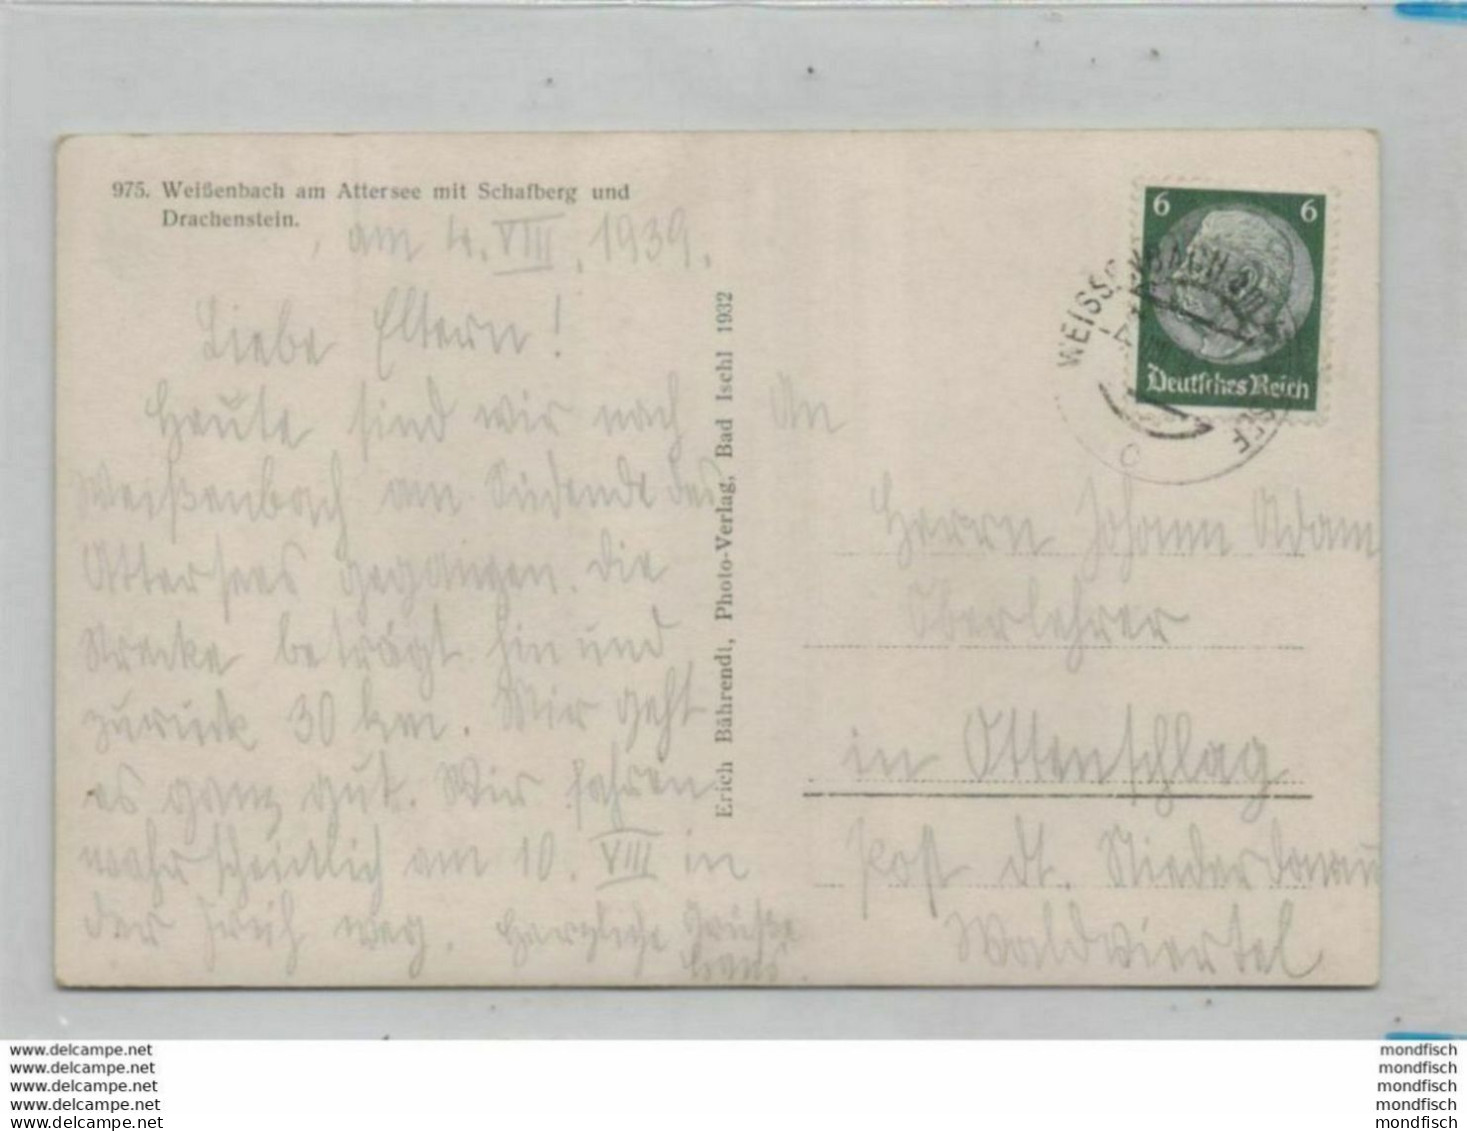 975. Weißenbach am Attersee mit Schafberg und
Drachenstein.
am 4. VIII. 1939.
Liebe Eltern!
Heute sind wir nach
Weißenbach am Südende des
Attersees gegangen. Die
Strecke beträgt hin und
zurück 30 km. Mir geht
es ganz gut. Wir fahren
wahrscheinlich am 10. VIII in
der Früh weg. Herzliche Grüße
Hans.
Erich Bährendt, Photo-Verlag, Bad Ischl 1932
6 6
Deutsches Reich
WEISSENBACH am
SEE
c
An
Herrn Johann Adam
Oberlehrer
in Ottenschlag
Post dt. Niederdonau
Waldviertel
www.delcampe.net
www.delcampe.net
www.delcampe.net
www.delcampe.net
www.delcampe.net
mondfisch
mondfisch
mondfisch
mondfisch
mondfisch